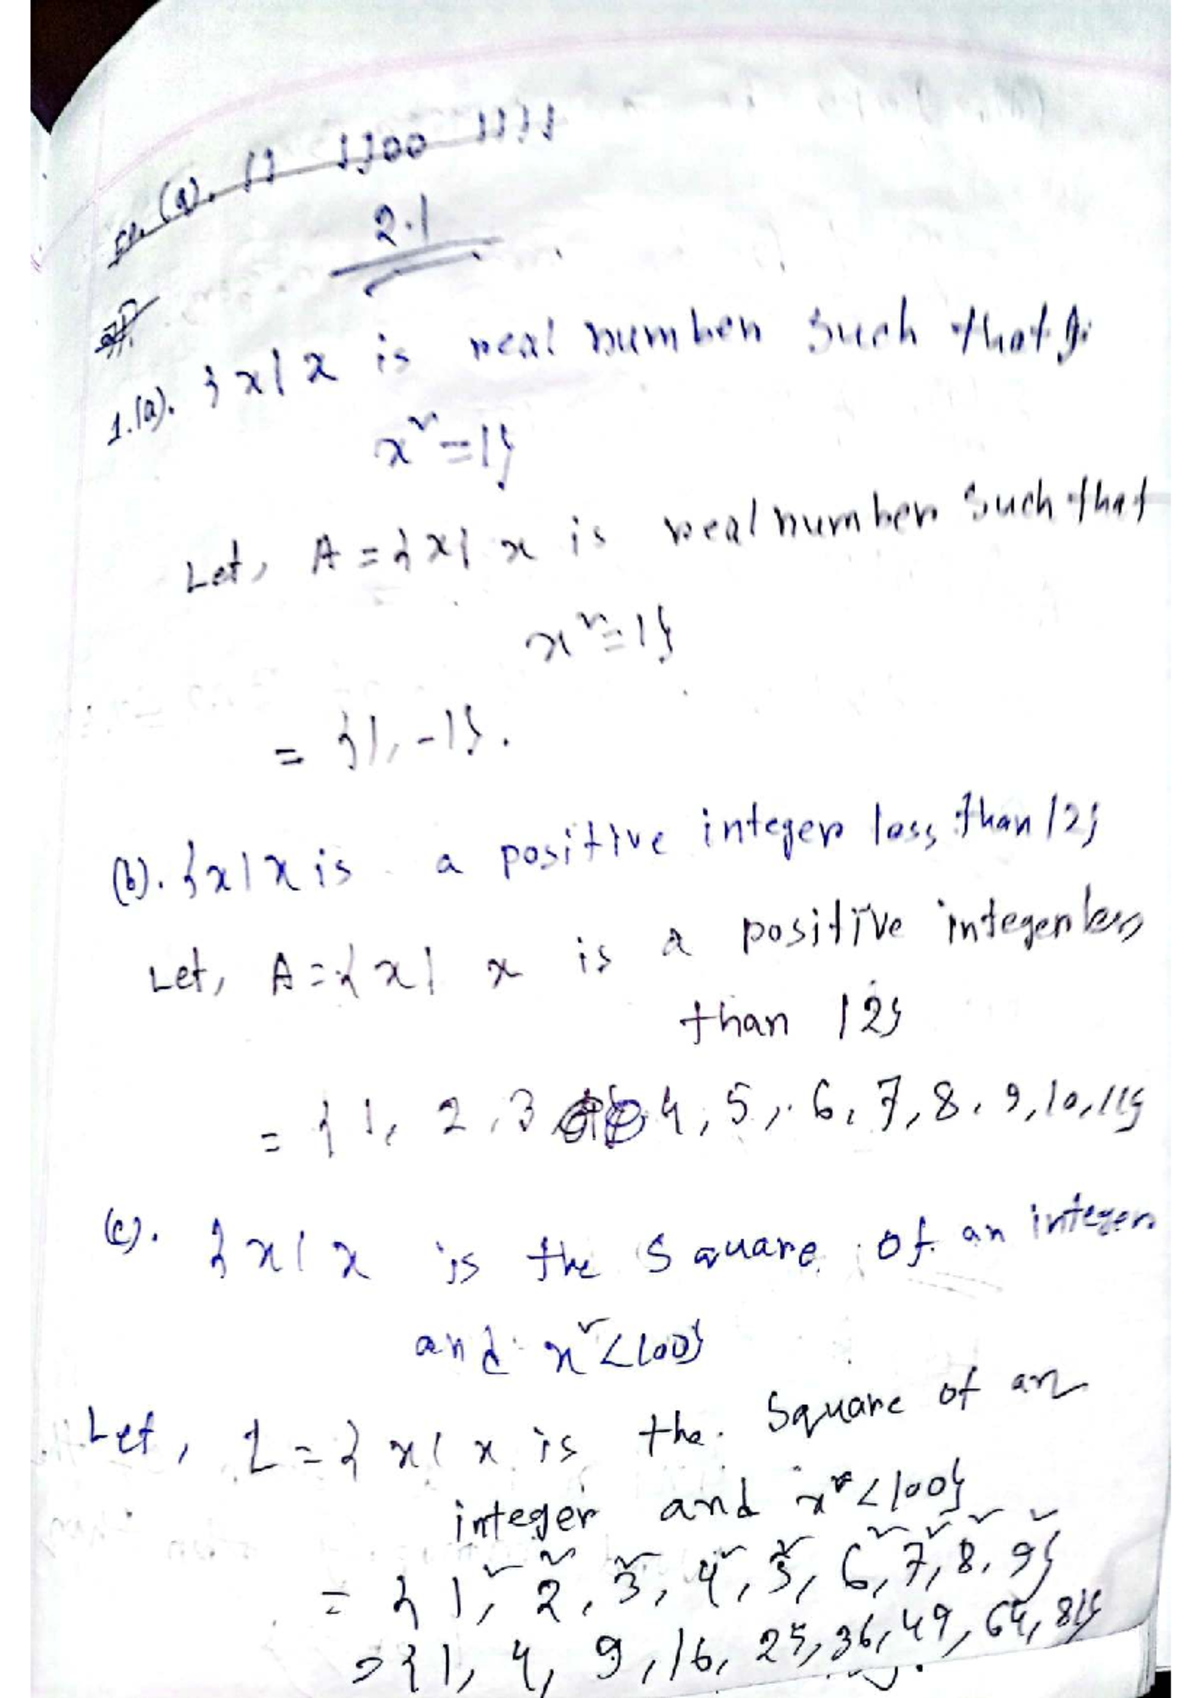 2.1
1.(a). {x | x is real number such that
x² = 1}
Let, A = {x | x is real number such that
x² = 1}
= {1, -1}.
(b). {x | x is a positive integer less than 12}
Let, A = {x | x is a positive integer less
than 12}
= {1, 2, 3 4, 5, 6, 7, 8, 9, 10, 11}
(c). {x | x is the square of an integer
and x² < 100}
Let, = {x | x is the square of an
integer and x² < 100}
= {1², 2², 3², 4², 5², 6², 7², 8², 9²}
= {1, 4, 9, 16, 25, 36, 49, 64, 81}